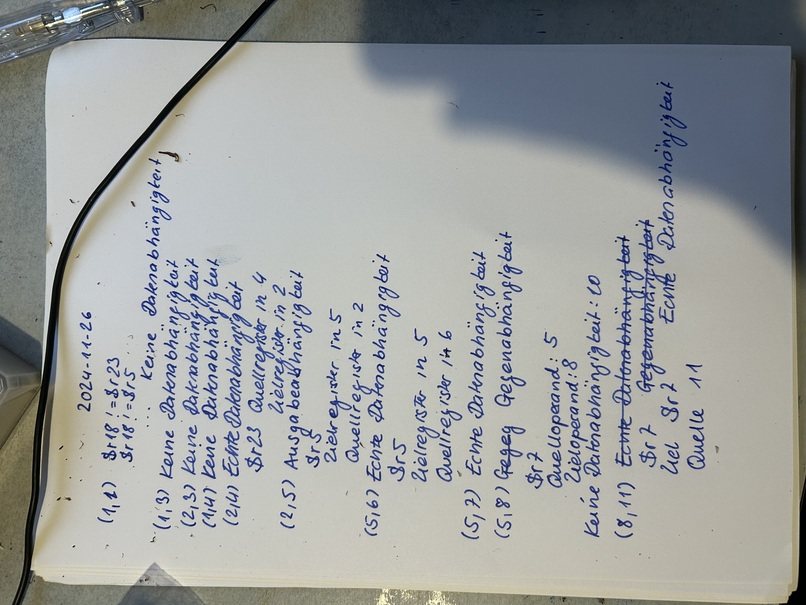 2024-11-26
(1,2) $r18 != $r23
$r18 != $r5
... Keine Datenabhängigkeit
(1,3) Keine Datenabhängigkeit
(2,3) Keine Datenabhängigkeit
(1,4) Keine Datenabhängigkeit
(2,4) Echte Datenabhängigkeit
$r23 Quellregister in 4
Zielregister in 2
(2,5) Ausgabeabhängigkeit
$r5
Zielregister in 5
Quellregister in 2
(5,6) Echte Datenabhängigkeit
$r5
Zielregister in 5
Quellregister in 6
(5,7) Echte Datenabhängigkeit
(5,8) Gegeg Gegenabhängigkeit
$r7
Quelloperand: 5
Zieloperand: 8
Keine Datenabhängigkeit: 10
(8,11) Echte Datenabhängigkeit
$r7 Gegenabhängigkeit
Ziel $r7 Echte Datenabhängigkeit
Quelle 11